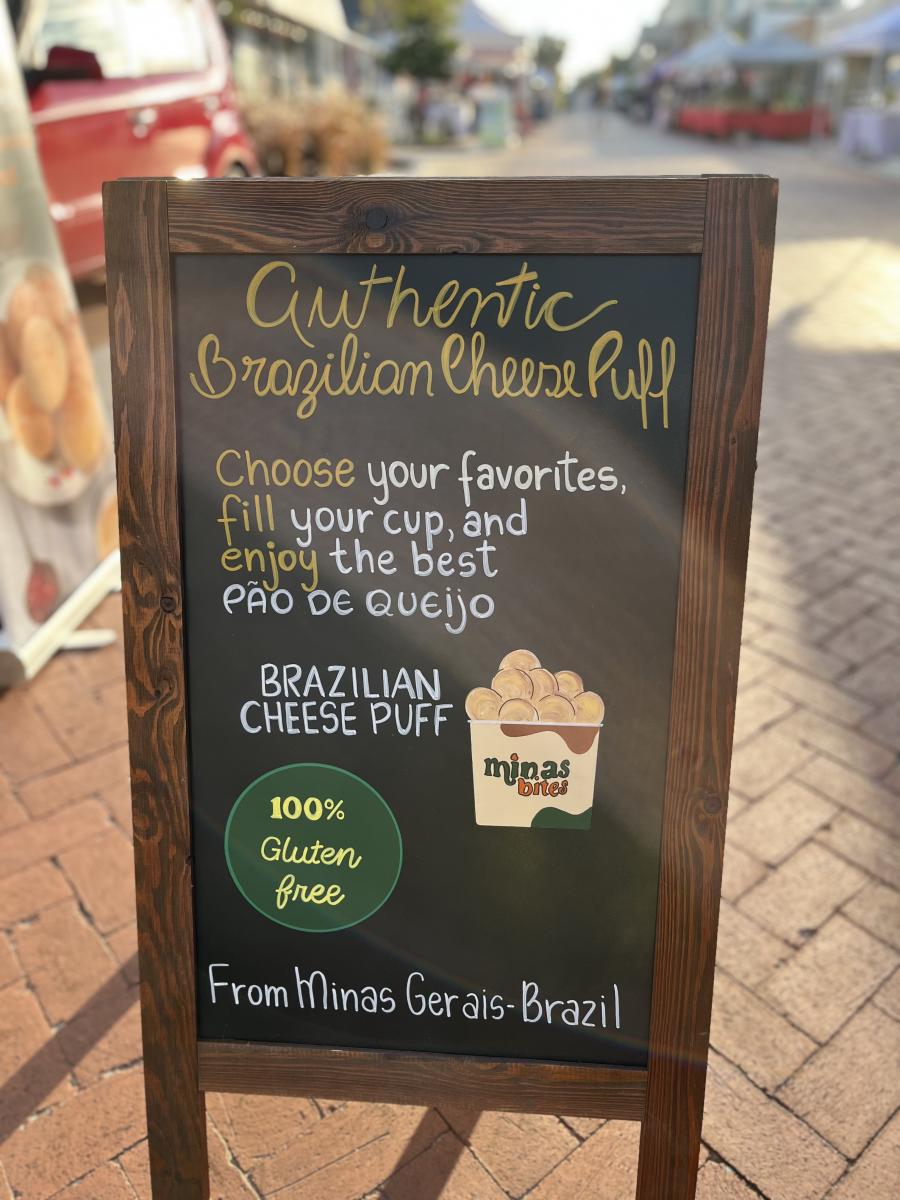 Authentic
Brazilian Cheese Puff
Choose your favorites,
fill your cup, and
enjoy the best
PÃO DE QUEIJO
BRAZILIAN
CHEESE PUFF
minas
bites
100%
Gluten
free
From Minas Gerais-Brazil